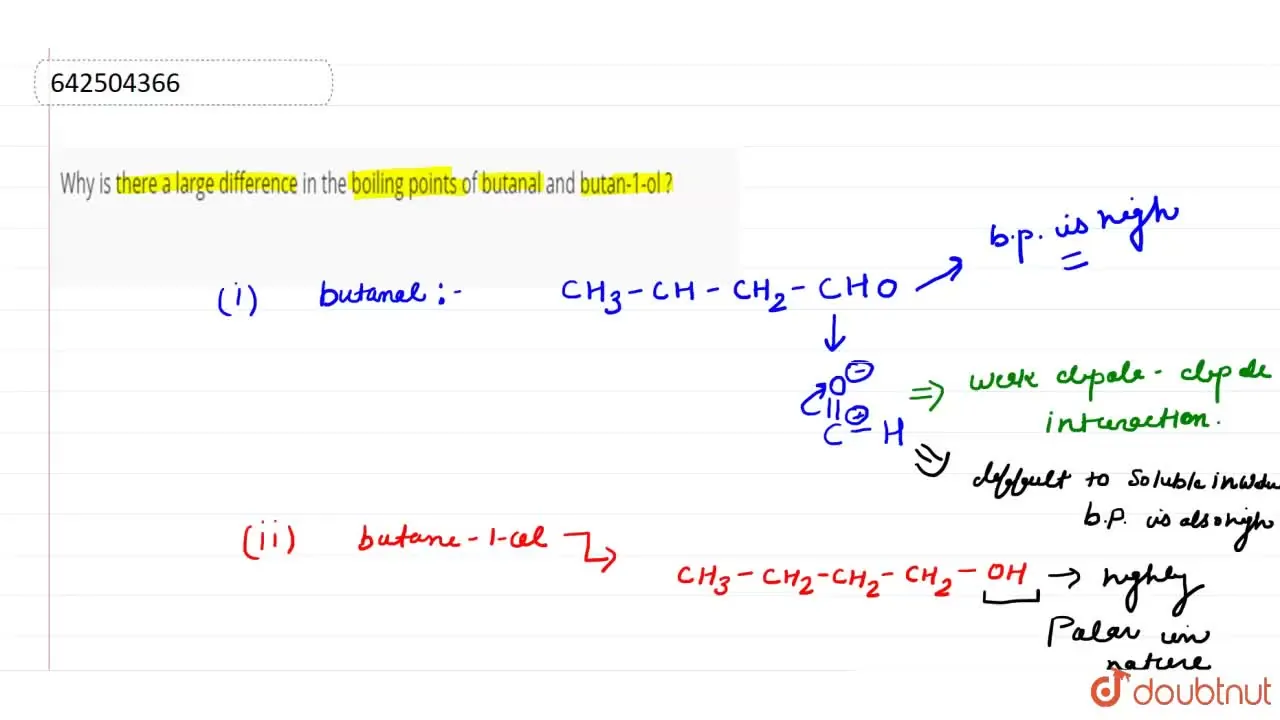 642504366
Why is there a large difference in the boiling points of butanal and butan-1-ol ?
b.p. is high
(i) butanal :- CH3 - CH - CH2 - CHO
O
C H
weak dipole - dipole
interaction.
difficult to soluble in
b.p. is also high
(ii) butane-1-ol
CH3 - CH2 - CH2 - CH2 - OH → highly
Polar in
nature
doubtnut